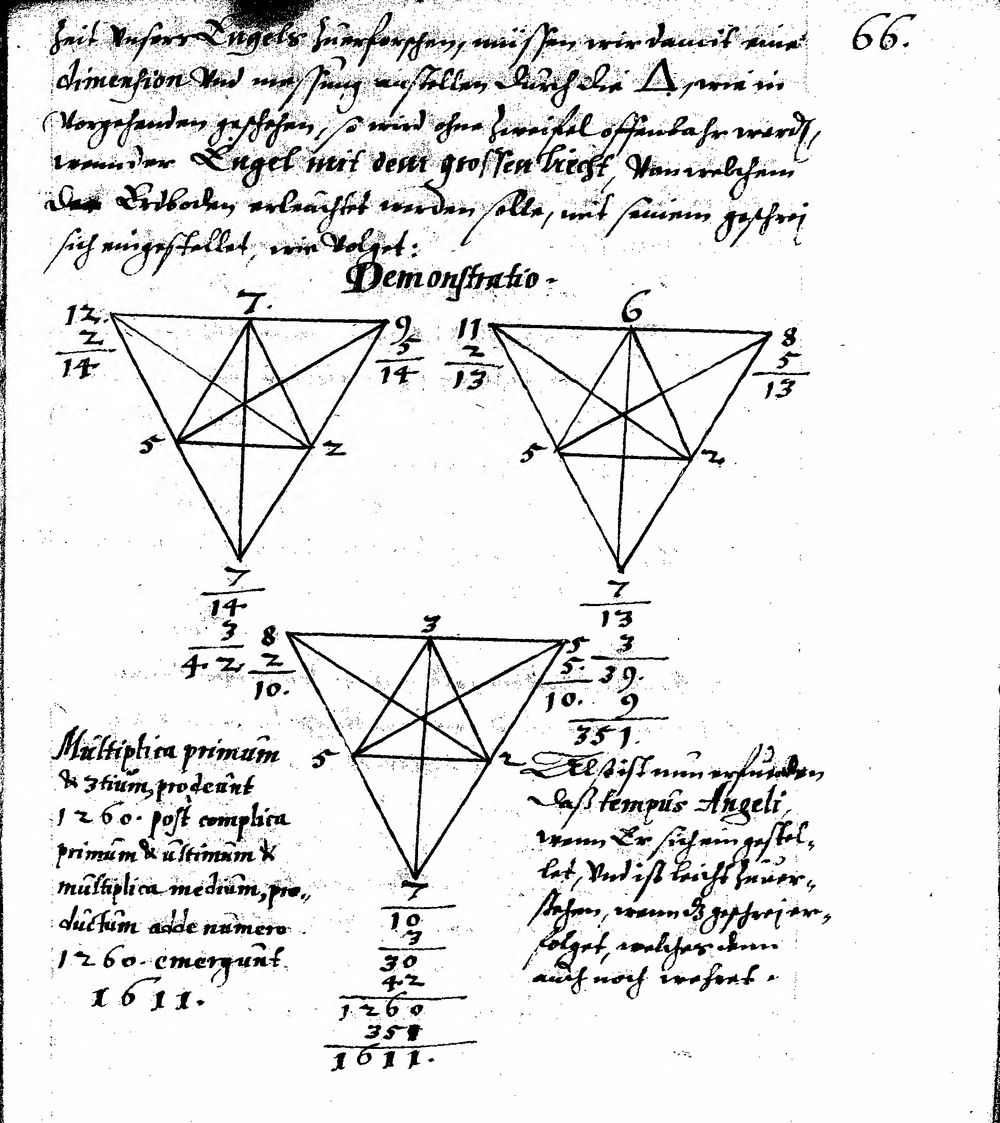 66.
Zeit Unsers Engels Zuerforschen, müssen wir damit eine
dimension Und messung anstellen durch die Δ, wie in
Vorgehenden geschehen, so wird ohne Zweifel offenbahr werdℯ,
wann der Engel mit dem grossen Liecht, Von welchem
der Erdboden erleuchtet werden solle, mit seinem geschrei
sich eingestellet, wie Volget:
Demonstratio.
12. 7. 9
2 5
14 14
5 2
7
14
3
42
11 6 8
2 5
13 13
5 2
7
13
3
39.
9
351.
8 3 5
2 5.
10. 10.
5 2
7
10
3
30
42
1260
351
1611.
Multiplica primum
& 3tium, prodeunt
1260. post complica
primum & ultimum &
multiplica medium, pro„
ductum adde numero
1260. emergunt
1611.
Also ist nun erfunden
daß tempus Angeli,
wenn Er sich eingestel„
let, Und ist leicht Zuver„
stehen, wenn dz geschrei er„
folget, welches denn
auch noch wehret.